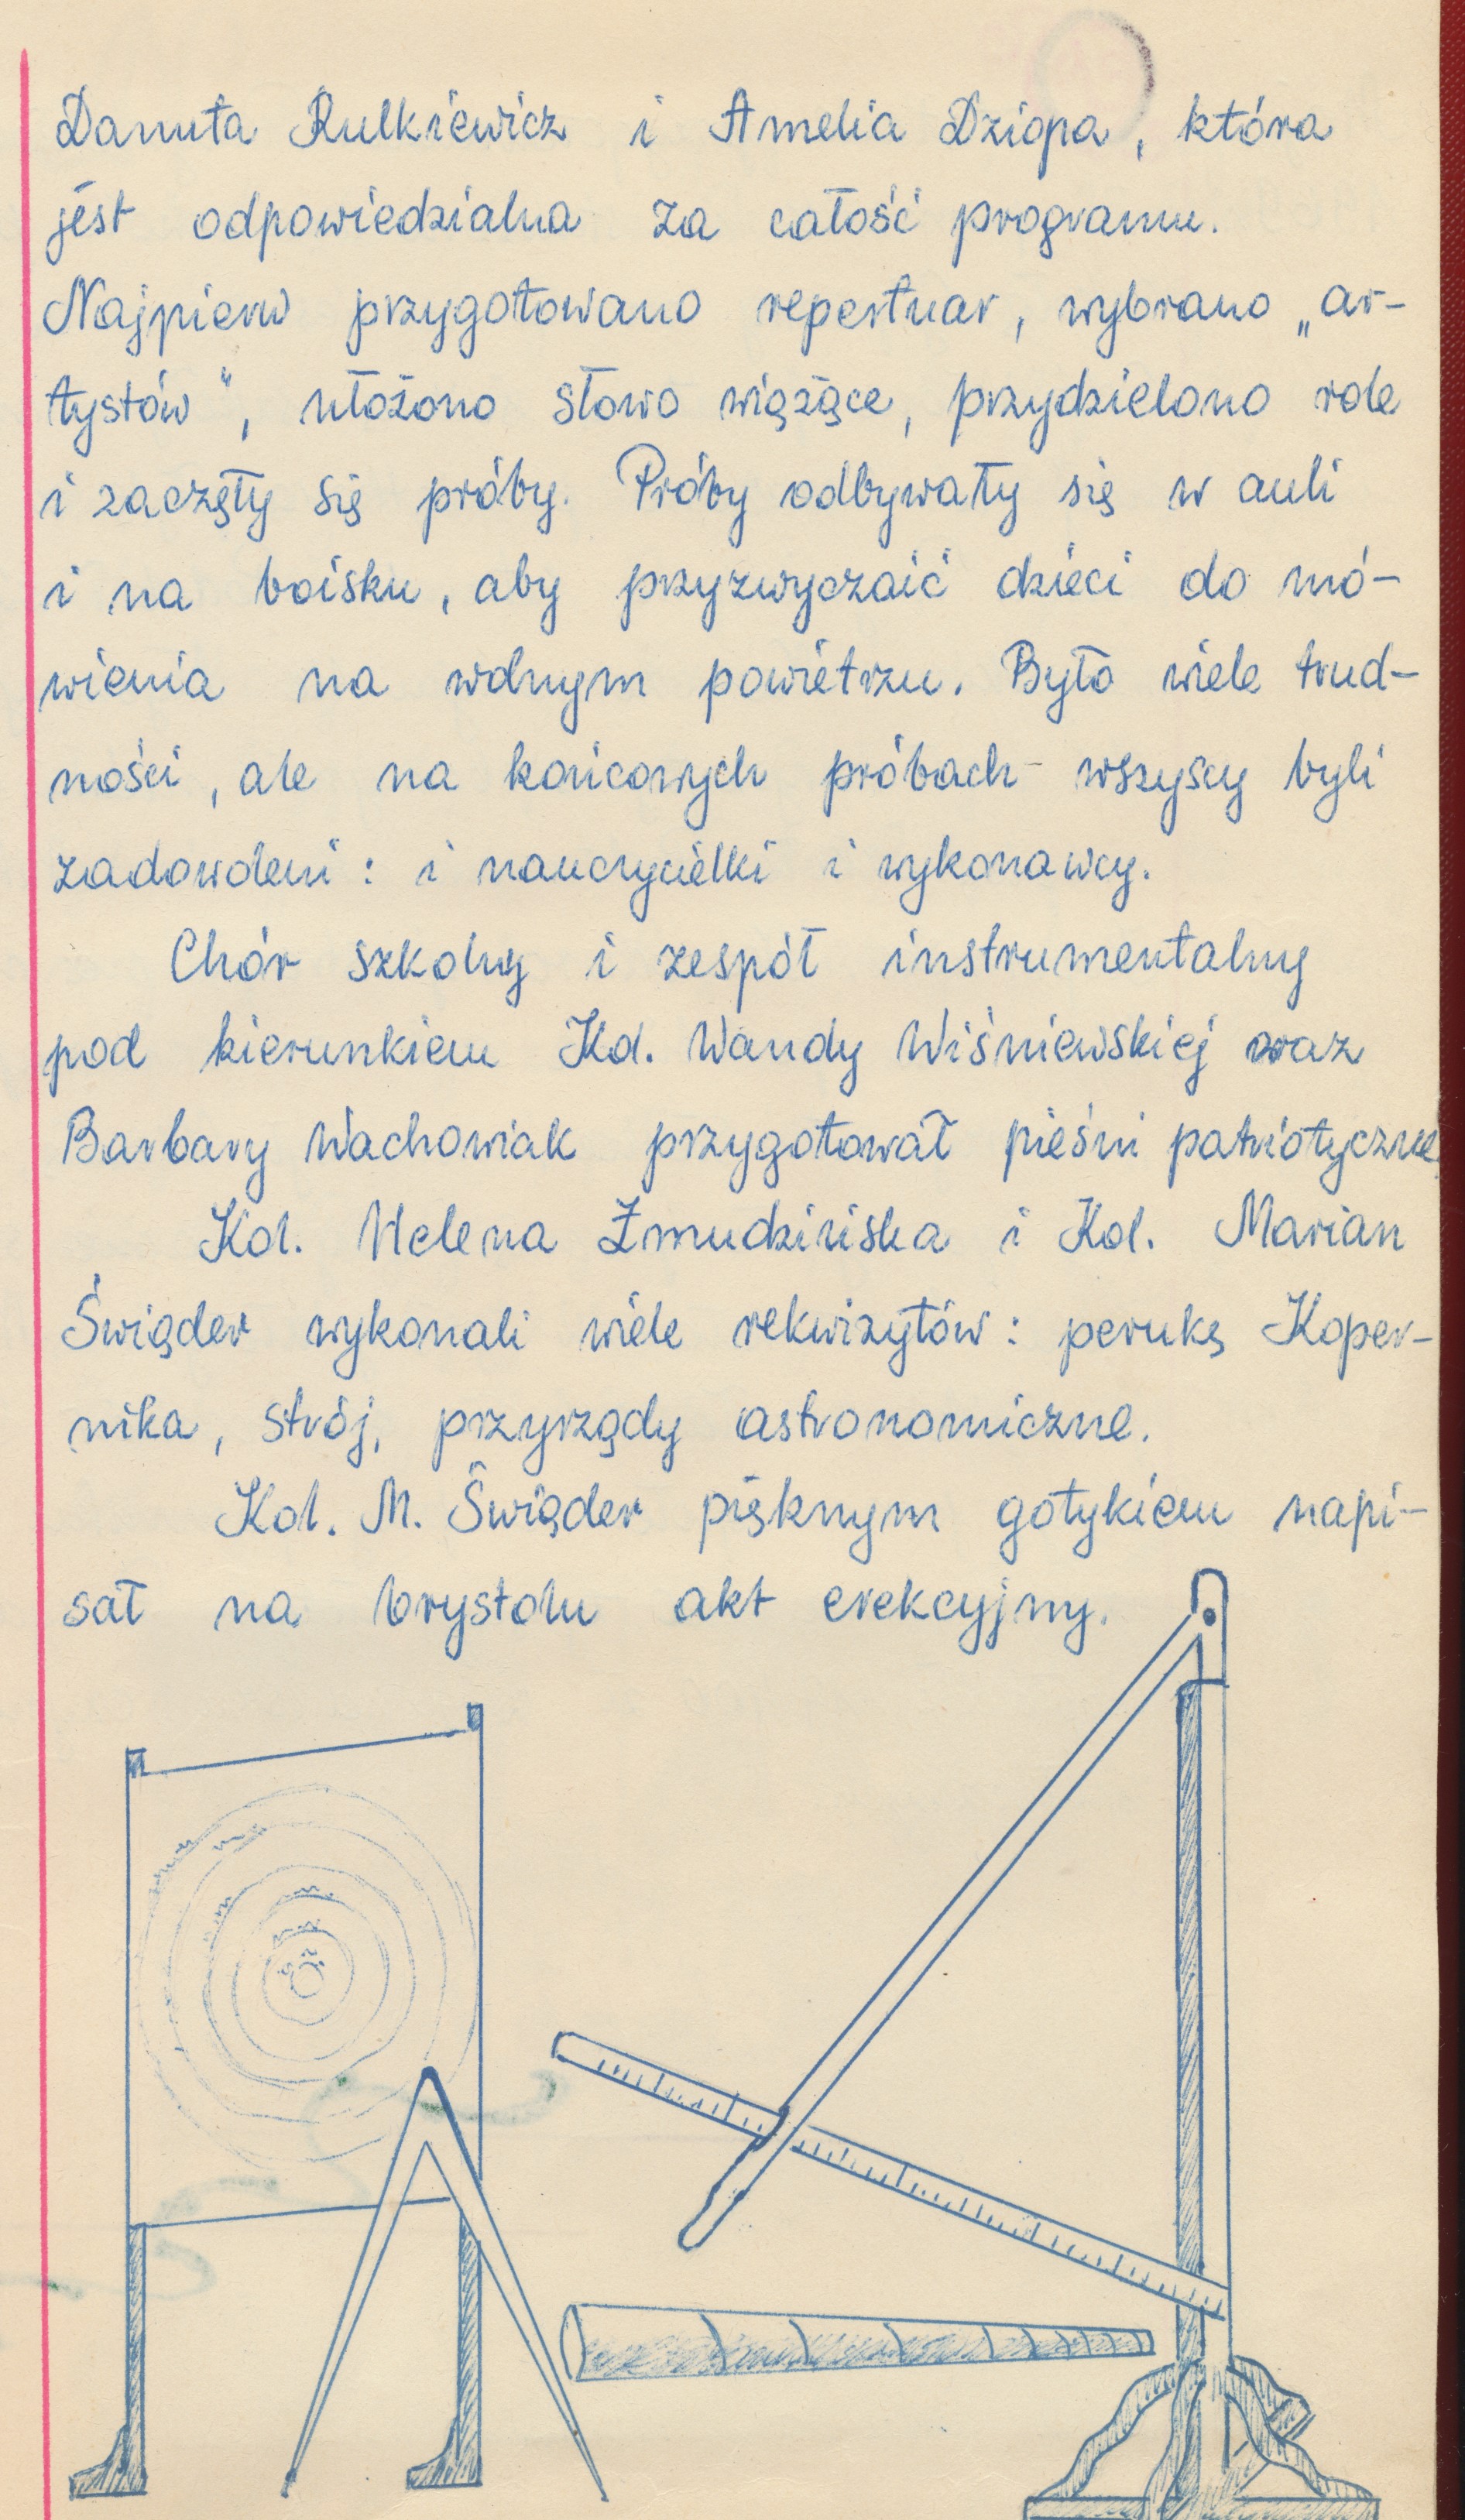 Danuta Rulkiewicz i Amelia Dziopa, która
jest odpowiedzialna za całość programu.
Najpierw przygotowano repertuar, wybrano „ar-
tystów", ułożono słowo wiążące, przydzielono role
i zaczęły się próby. Próby odbywały się w auli
i na boisku, aby przyzwyczaić dzieci do mó-
wienia na wolnym powietrzu. Było wiele trud-
ności, ale na końcowych próbach wszyscy byli
zadowoleni : i nauczycielki i wykonawcy.
Chór szkolny i zespół instrumentalny
pod kierunkiem Kol. Wandy Wiśniewskiej oraz
Barbary Wachowiak przygotował pieśni patriotyczne.
Kol. Helena Żmudzińska i Kol. Marian
Świąder wykonali wiele rekwizytów : perukę Koper-
nika, strój, przyrządy astronomiczne.
Kol. M. Świąder pięknym gotykiem napi-
sał na brystolu akt erekcyjny.